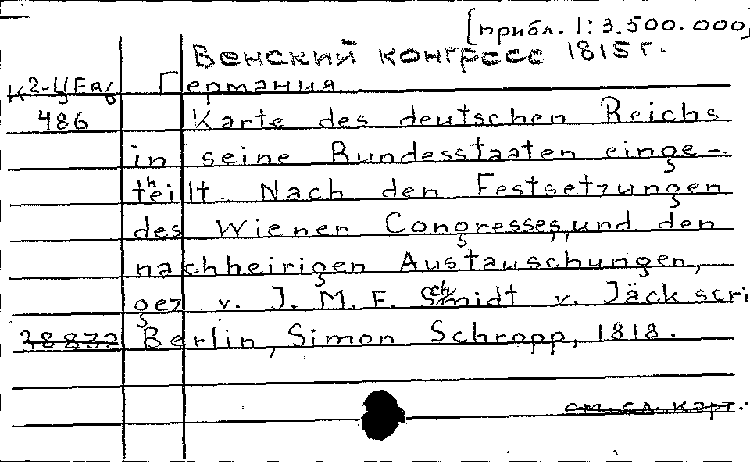 [прибл. 1:3.500.000]
Венский конгресс 1815 г.
К2-Ц Ев/6 Германия
486 Karte des deutschen Reichs
in seine Bundesstaaten einge-
theilt. Nach den Festsetzungen
des Wiener Congresses, und den
nachheirigen Austauschungen,
gez v. J. M. F. Schmidt v. Jäck scri
38833 Berlin, Simon Schropp, 1818.
см. сл. карт.